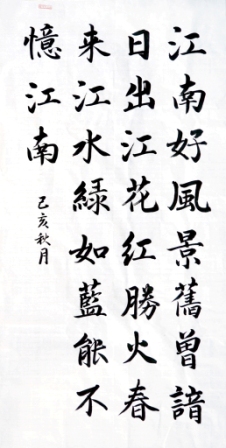 江南好風景舊曾諳
日出江花红勝火春
来江水綠如藍能不
憶江南
己亥秋月